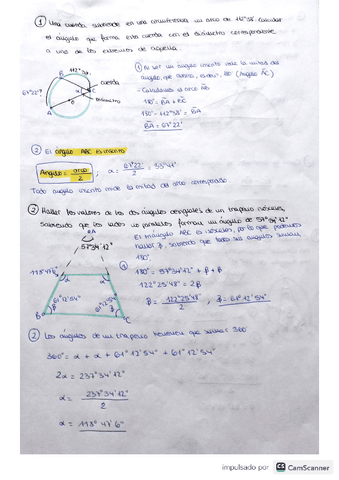 ① Una cuerda subtiende en una circunferencia un arco de 112°38'. Calcular
el ángulo que forma esta cuerda con el diámetro correspondiente
a uno de los extremos de aquella.
B
112°38'
C
cuerda
67°22'?
α
O
diámetro
A
① Al ser un ángulo inscrito vale la mitad del
- Calculamos el arco AB
180° = BA + BC
180° - 112°38' = BA
BA = 67°22'
② El ángulo ABC es inscrito
Ángulo = arco / 2
α = 67°22' / 2 = 33°41'
Todo ángulo inscrito mide la mitad del arco comprendido.
② Hallar los valores de los dos ángulos desiguales de un trapecio isósceles,
sabiendo que los lados no paralelos forman un ángulo de 57°34'12"
A
57°34'12"
El triángulo ABC es isósceles, por lo que podemos
hallar β, sabiendo que todos sus ángulos suman
180°.
① 180° = 57°34'12" + β + β
122°25'48" = 2β
β = 122°25'48" / 2 ; β = 61°12'54"
118°47'6"
α
α
61°12'54"
61°12'54"
B
C
② Los ángulos de un trapecio tienen que sumar 360°
360° = α + α + 61°12'54" + 61°12'54"
2α = 237°34'12"
α = 237°34'12" / 2
α = 118°47'6"
impulsado por CS CamScanner